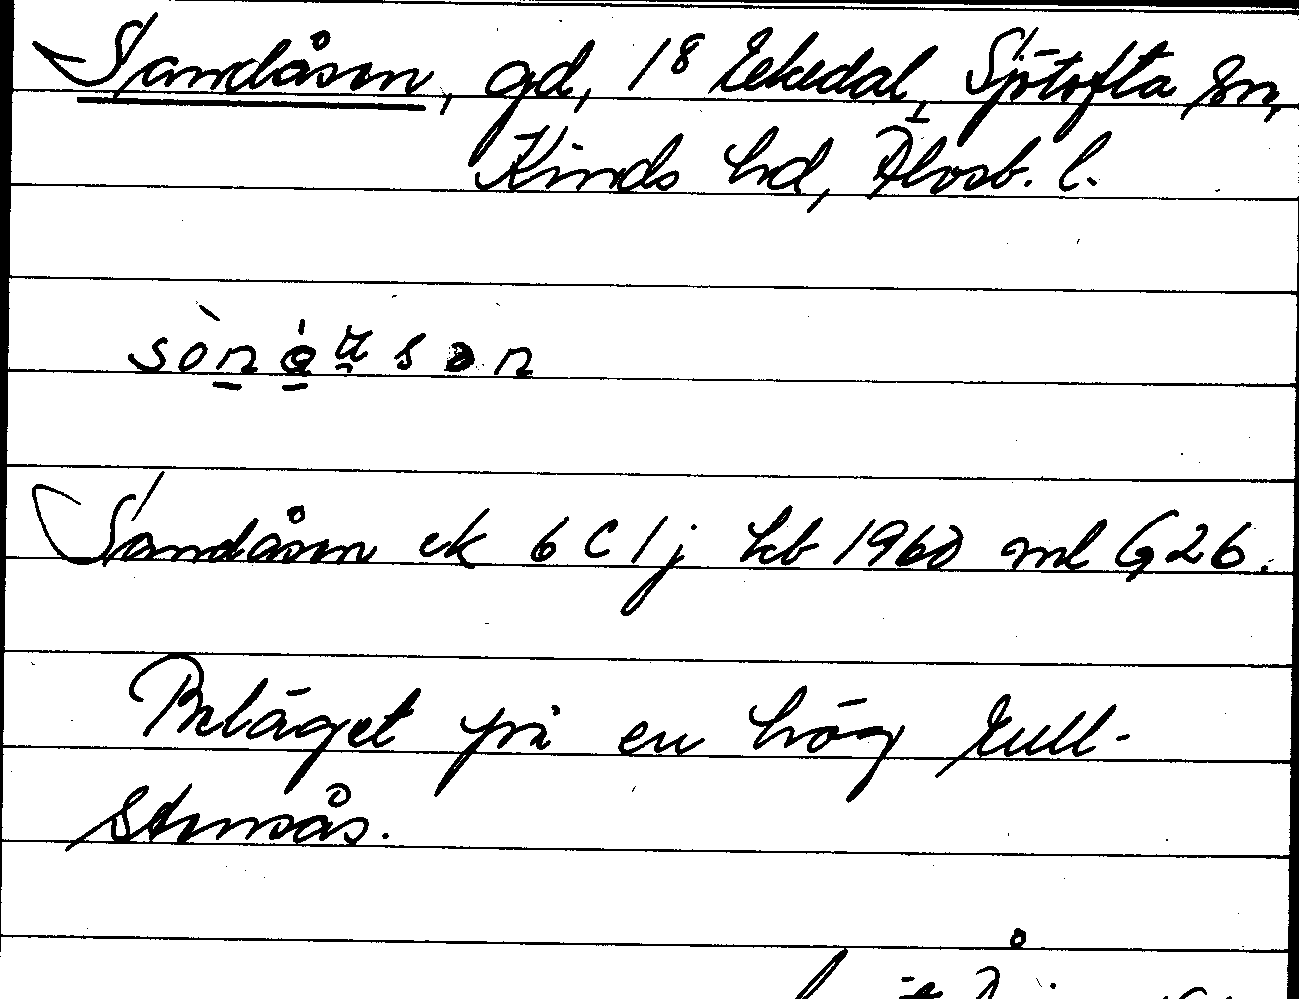 Sandåsen, gd, 1⁸ Ekedal, Sjötofta sn,
Kinds hd, Älvsb. l.
Sandåsen ek 6 C 1 j kb 1960 ml G 26.
Beläget på en hög rull-
stensås.